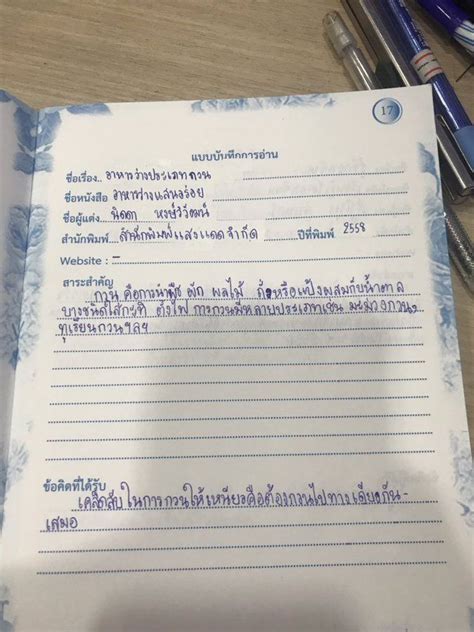 17
แบบบันทึกการอ่าน
ชื่อเรื่อง.. อาหารว่างประเภทกวน
ชื่อหนังสือ อาหารว่างแสนอร่อย
ชื่อผู้แต่ง นิดดา หงษ์วิวัฒน์
สำนักพิมพ์ สำนักพิมพ์แสงแดดจำกัด ปีที่พิมพ์ 2558
Website : -
สาระสำคัญ
กวน คือการนำพืช ผัก ผลไม้ ถั่วหรือแป้งผสมกับน้ำตาล
บางชนิดใส่กะทิ ตั้งไฟ การกวนมีหลายประเภทเช่น มะม่วงกวน
ทุเรียนกวนฯลฯ
ข้อคิดที่ได้รับ
เคล็ดลับในการกวนให้เหนียวคือต้องกวนไปทางเดียวกัน-
เสมอ